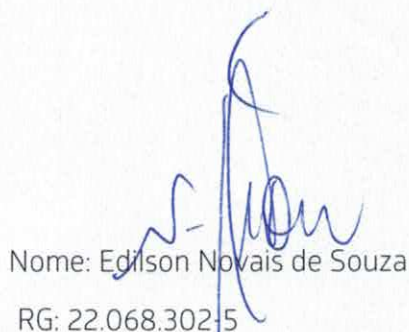 Nome: Edilson Novais de Souza
RG: 22.068.302-5